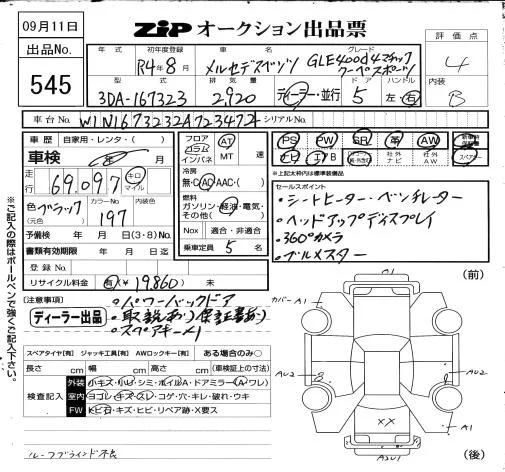 09月11日
ZiP オークション出品票
出品No.
545
評価点
4
内装
B
年式 初年度登録 車名 グレード
R4年8月 メルセデスベンツ GLE400d4マチック
クーペスポーツ
型式 排気量 ドア ハンドル
3DA-167323 2,920 ディーラー・並行 5 左・右
車台No. W1N1673232A723472 シリアルNo.
車歴 自家用・レンタ・( )
車検 年 月
走行 69,097 キロ マイル
色 ブラック (元色) カラーNo. 197 内装色
予備検 年 月 日(3・8)No.
書類有効期限 年 月 日迄
登録No.
リサイクル料金 有(¥19,860) 未
フロア コラム インパネ AT MT 速
冷房 無・C・AC・AAC・( )
燃料 ガソリン・軽油・電気・その他( )
Nox 適合・非適合
乗車定員 5 名
PS PW SR 革 AW
ナビ 社外AW スペアキー
※上記枠内は標準装備品
セールスポイント
・シートヒーター・ベンチレーター
・ヘッドアップディスプレイ
・360°カメラ
・ブルメスター
(注意事項)
ディーラー出品
・パワーバックドア
・取説あり(保証書あり)
・スペアキー×1
スペアタイヤ[有] ジャッキ工具[有] AWロックキー[有] ある場合のみ○
長さ cm 幅 cm 高さ cm (車検証上の寸法)
検査記入
外装 小キズ・小ヘコ・シミ・ホイルA・ドアミラー(A・ワレ)
室内 ヨゴレ・キズ・スレ・コゲ・穴・キレ・破れ・ウキ
FW トビ石・キズ・ヒビ・リペア跡・X要ス
ルーフブラインド不良
※ご記入の際はボールペンで強くご記入下さい。
(前)
カバーA1
A1
AU2
AU2
XX
A1
(後)